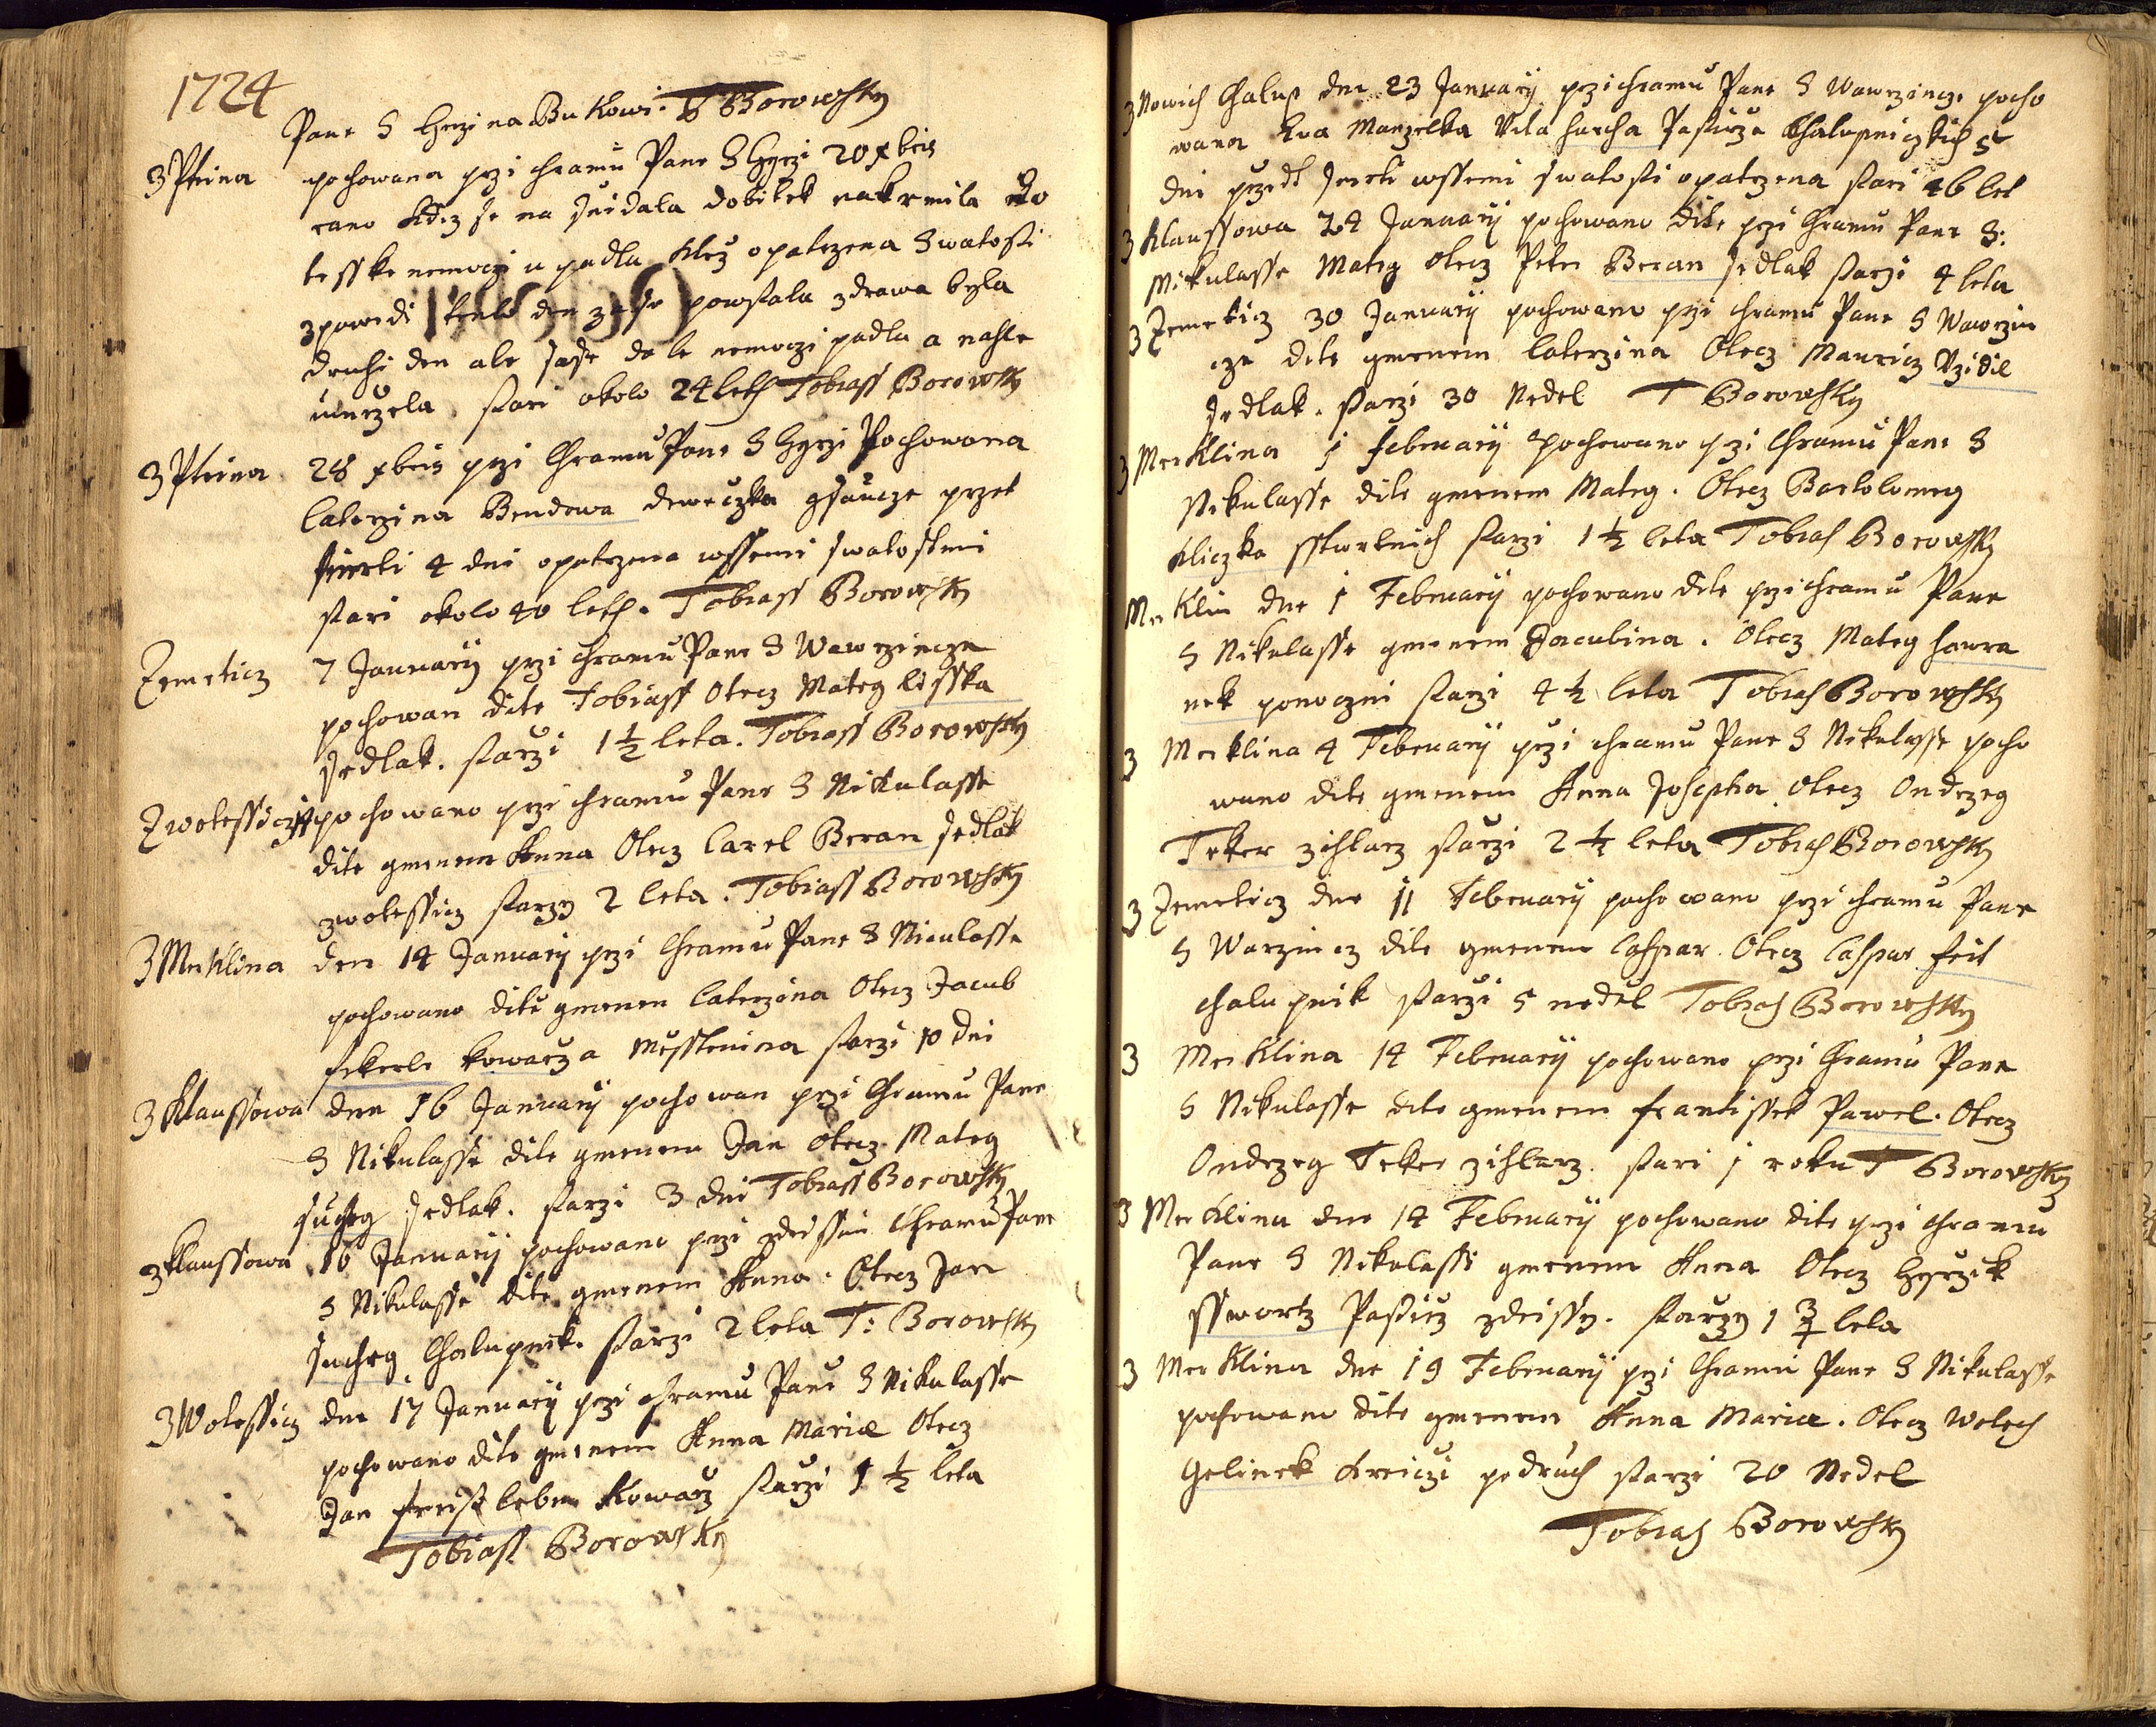 1724
Pane S Hyrzi na Bukowi. T Borowsky
z Ptina pochowana przi chramu Pane S Hyrzi 20 xbris
rano kdiz se na snidala dobitek nakrmila do
tesske nemoczi upadla kterz opatrzena Swatosti
zpowedi tento den zase powstala zdrawa byla
druhi den ale sasse do te nemoczi padla a nahle
umrzela. stari okolo 24 leth Tobiass Borowsky
z Ptina 28 xbris przi Chramu Pane S Hyrzi Pochowana
Caterzina Bendowa deweczka gsaucze przet
smrti 4 dni opatrzena wssemi swatostmi
stari okolo 40 leth. Tobiass Borowsky
Zemeticz 7 January przi chramu Pane S Wawrzincze
pochowan dite Tobiass Otecz Mateg Lisska
sedlak. starzi 1 1/2 leta. Tobiass Borowsky
Zwolessicz pochowano przi chramu Pane S Nikulasse
dite gmenem Anna Otecz Carel Beran sedlak
zwolessicz starzy 2 leta. Tobiass Borowsky
z Merklina den 14 January przi Chramu Pane S Niculasse
pochowano dite gmenem Caterzina Otecz Jacub
Ekerle kowarz a Messtenina starzi 10 dni
z Klaussowa dne 16 January pochowan przi Chramu Pane
S Nikulasse dite gmenem Jan Otecz Mateg
suchey sedlak. starzi 3 dni Tobiass Borowsky
z Klaussowa 16 January pochowano przi zdeissim Chramu Pane
S Nikulasse dite gmenem Anna. Otecz Jan
suchey Chalupnik. starzi 2 leta T: Borowsky
z Wolessicz dne 17 January przi chramu Pane S Nikulasse
pochowano dite gmenem Anna Mariae Otecz
Jan Kowarz starzi 1 1/2 leta
Tobiass Borowsky
z Nowich Chalup dne 23 January przi chramu Pane S Wawrzincze pocho
wana Ewa Manzelka Wita Pastirze Chalupniczkich
dni przedt smrti wssemi swatosti opatrzena stari 46 let
z Klaussowa 24 January pochowano dite przi Chramu Pane S:
Nikulasse Mateg otecz Peter Beran sedlak starzi 4 leta
z Zemeticz 30 January pochowano przi chramu Pane S Wawrzin
cze dite gmenem Caterzina Otecz Mauricz Uzidil
sedlak. starzi 30 Nedel T Borowsky
z Merklina 1 February pochowano przi Chramu Pane S
Nikulasse dite gmenem Mateg. Otecz Bartolomeg
Kliczka starzi 1 1/2 leta Tobias Borowsky
Merklin dne 1 February pochowano dite przi chramu Pane
S Nikulasse gmenem Jacubina. Otecz Mateg Hawra
nek ponoczni starzi 4 1/2 leta Tobias Borowsky
z Merklina 4 February przi chramu Pane S Nikulasse pocho
wano dite gmenem Anna Josepha Otecz Ondrzeg
Teker zihlarz starzi 2 1/2 leta Tobias Borowsky
z Zemeticz dne 11 February pochowano przi chramu Pane
S Warzincz dite gmenem Caspar. Otecz Caspar feit
chalupnik starzi 5 nedel Tobias Borowsky
z Merklina 14 February pochowano przi Chramu Pane
S Nikulasse dite gmenem frantissek Pawel. Otecz
Ondrzeg Teker zihlarz. stari 1 roku T Borowsky
z Merklina dne 14 February pochowano dite przi chramu
Pane S Nikulassi gmenem Anna Otecz Hyrzik
sswartz Pastirz zdeissy. starzy 1 3/4 leta
z Merklina dne 19 February przi Chramu Pane S Nikulasse
pochowano dite gmenem Anna Mariae. Otecz Wotech
Gelinek kreiczi podruch starzi 20 Nedel
Tobias Borowsky